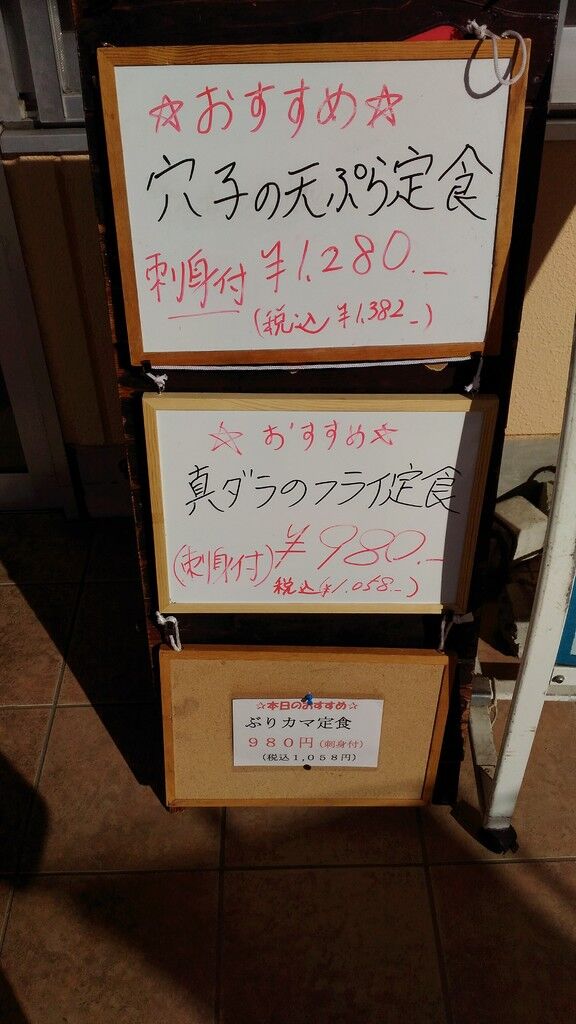 ☆おすすめ☆
穴子の天ぷら定食
刺身付 ¥1,280.-
(税込 ¥1,382-)
☆おすすめ☆
真ダラのフライ定食
(刺身付) ¥980.-
税込(¥1,058-)
☆本日のおすすめ☆
ぶりカマ定食
980円(刺身付)
(税込1,058円)